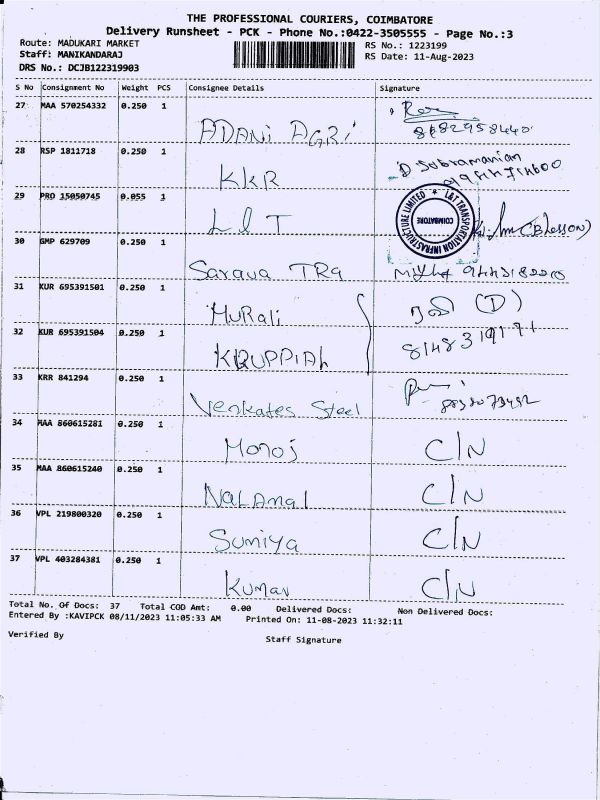 THE PROFESSIONAL COURIERS, COIMBATORE
Delivery Runsheet - PCK - Phone No.:0422-3505555 - Page No.:3
Route: MADUKARI MARKET
RS No.: 1223199
Staff: MANIKANDARAJ
RS Date: 11-Aug-2023
DRS No.: DCJB122319903
S No Consignment No Weight PCS Consignee Details Signature
27 MAA 570254332 0.250 1
ADANi AGRi
28 RSP 1811718 0.250 1
KKR D. Subramanian
29 PRO 15050745 0.055 1
L&T TRANSPORTATION INFRASTRUCTURE LIMITED
COIMBATORE
L&T
30 GMP 629709 0.250 1
Sarava TRa
31 KUR 695391501 0.250 1
MURali ரவி (D)
32 KUR 695391504 0.250 1
KRUPPIAh
33 KRR 841294 0.250 1
Venkates Steel
34 MAA 860615281 0.250 1
Monoj C/N
35 MAA 860615240 0.250 1
NaLAmal C/N
36 VPL 219800320 0.250 1
Sumiya C/N
37 VPL 403284381 0.250 1
Kumar C/N
Total No. Of Docs: 37 Total COD Amt: 0.00 Delivered Docs: Non Delivered Docs:
Entered By :KAVIPCK 08/11/2023 11:05:33 AM Printed On: 11-08-2023 11:32:11
Verified By Staff Signature